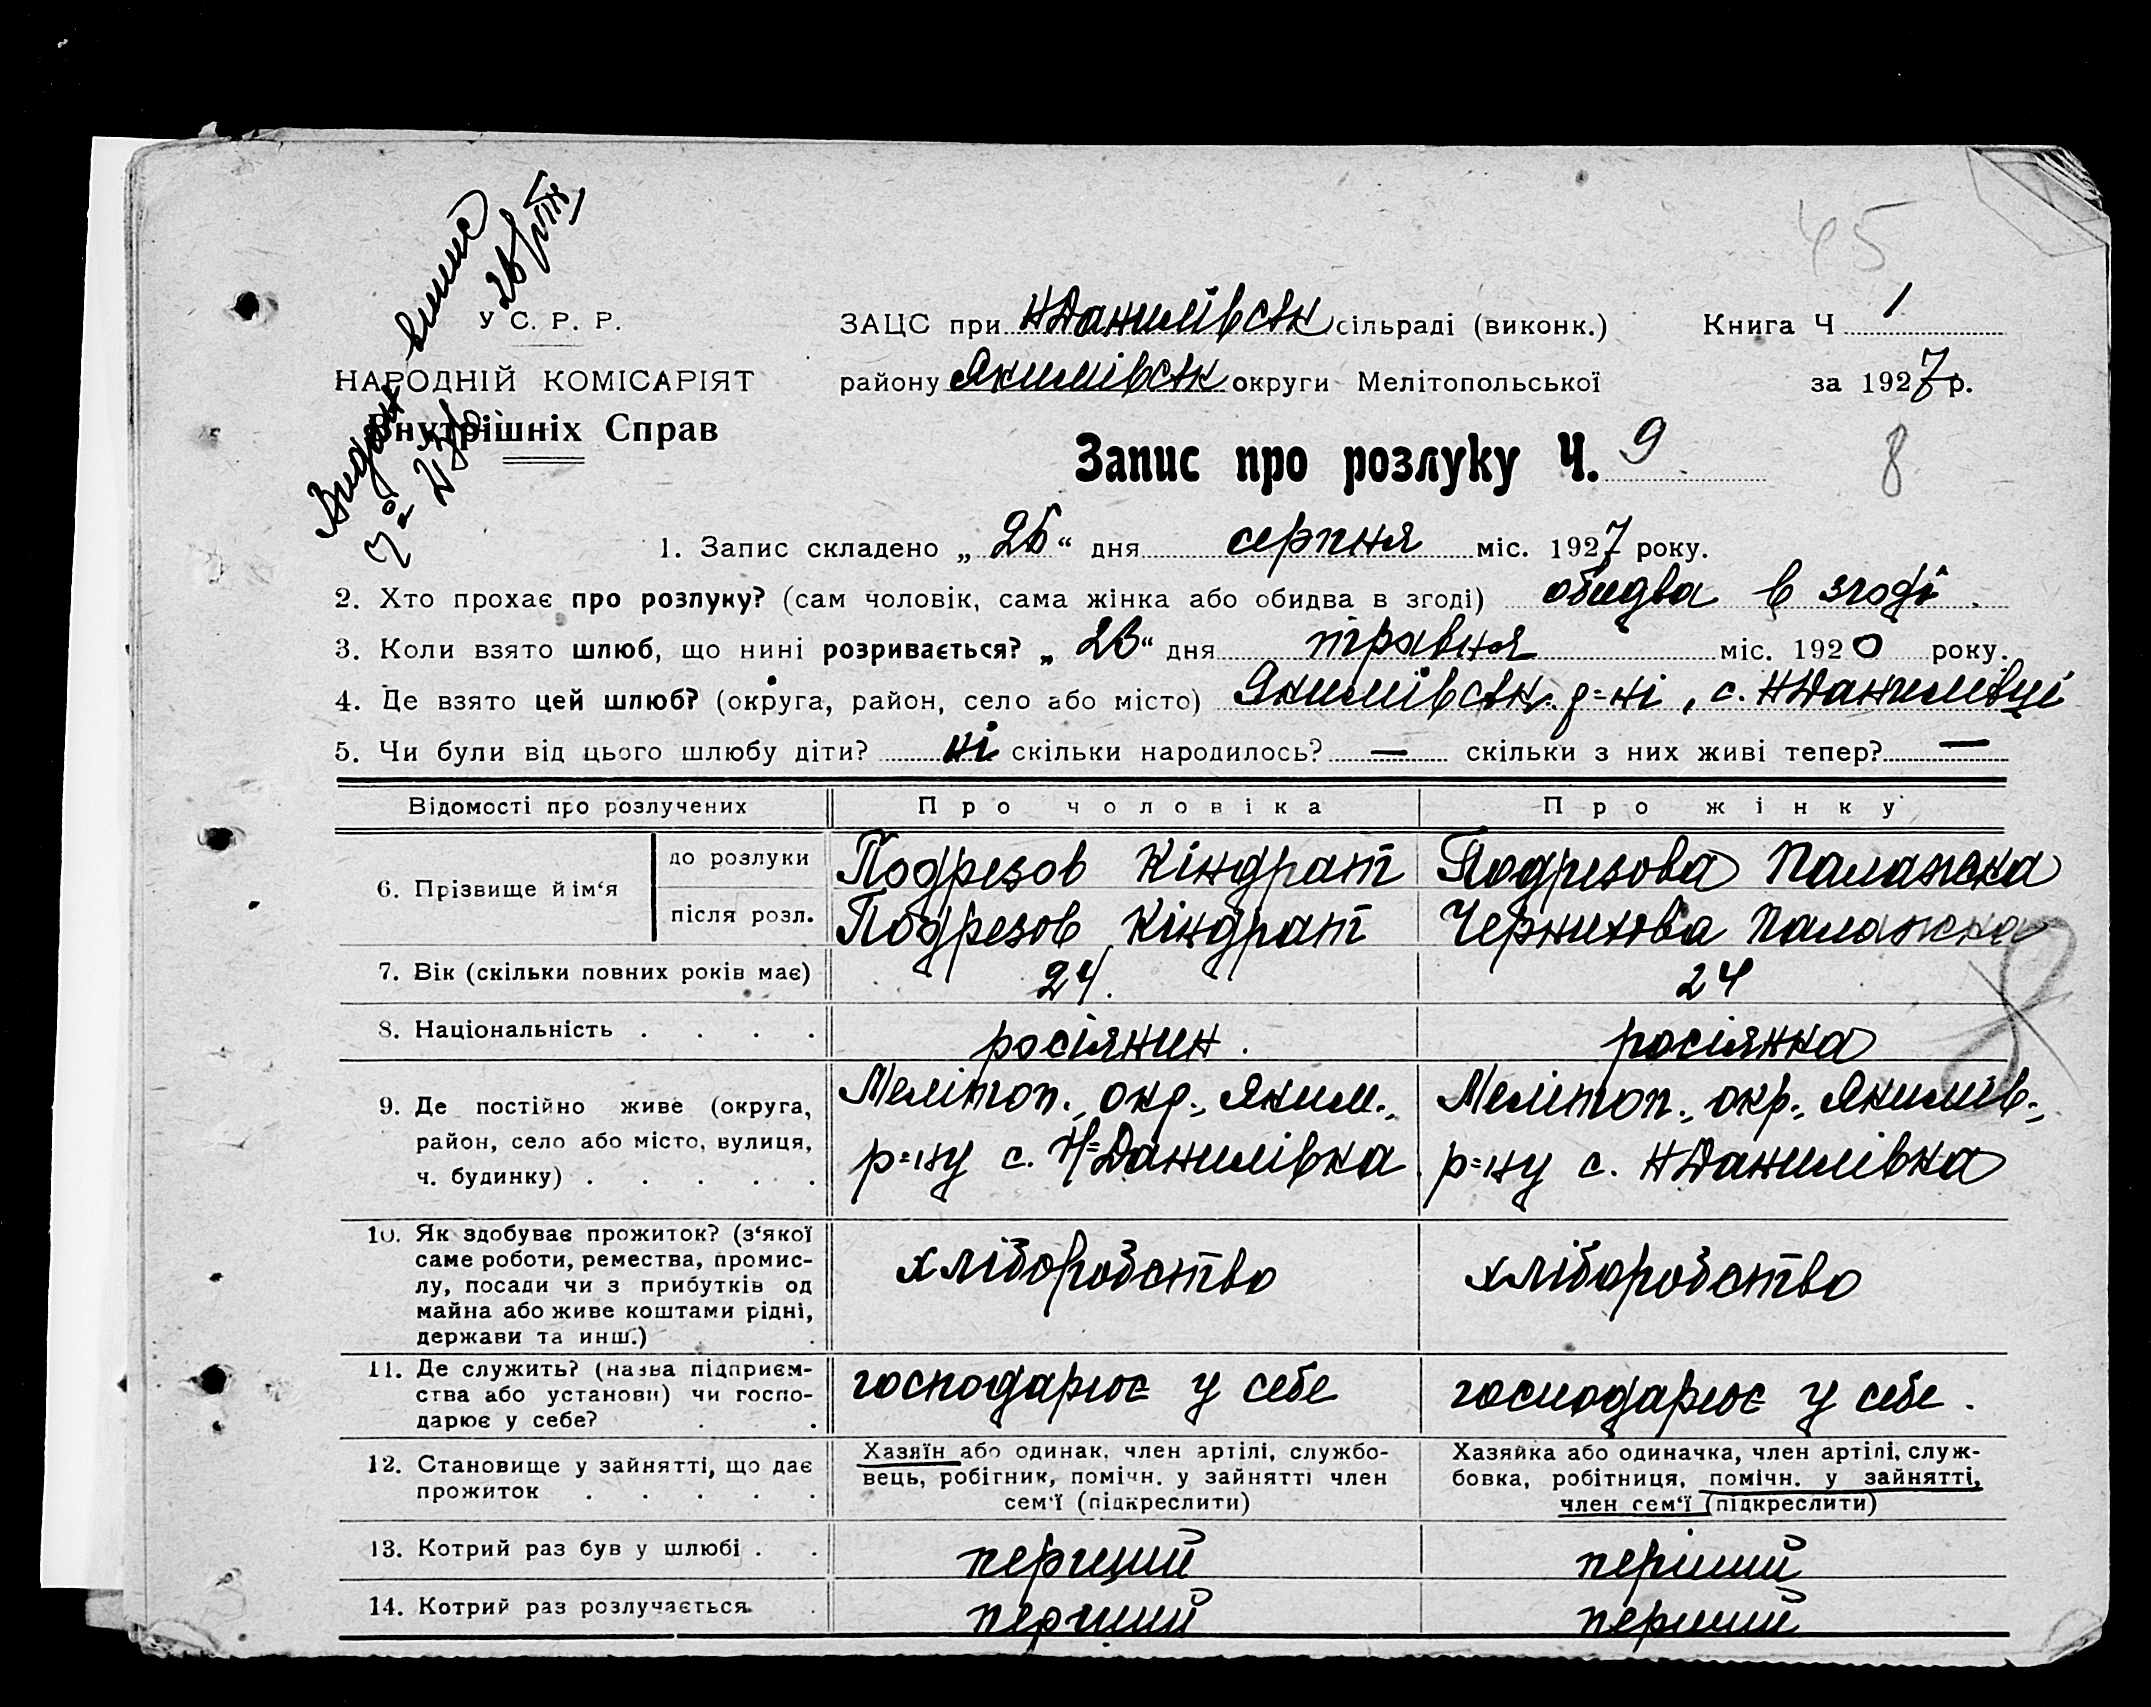 45
Видан випис
26/
У С. Р. Р.
НАРОДНІЙ КОМІСАРІЯТ
Внутрішніх Справ
ЗАЦС при НДанилівськ сільраді (виконк.) Книга Ч 1
району Якимівськ округи Мелітопольської за 1927 р.
Запис про розлуку Ч. 9
8
1. Запис складено „ 26 “ дня серпня міс. 1927 року.
2. Хто прохає про розлуку? (сам чоловік, сама жінка або обидва в згоді) обидва в згоді.
3. Коли взято шлюб, що нині розривається? „ “ дня травня міс. 1920 року.
4. Де взято цей шлюб? (округа, район, село або місто) Якимівськ. р=ні, с. НДанилівці
5. Чи були від цього шлюбу діти? ні скільки народилось? — скільки з них живі тепер? —
Відомості про розлучених Про чоловіка Про жінку
6. Прізвище й ім‘я
до розлуки Подрезов Кіндрат Подрезова Палажка
після розл. Подрезов Кіндрат Палажка
7. Вік (скільки повних років має) 24. 24
8. Національність . . . . росіянин. росіянка
8
9. Де постійно живе (округа,
район, село або місто, вулиця,
ч. будинку) . . . . .
Мелітоп., окр., Яким.,
р=ну с. Н=Данилівка
Меліпоп., окр., Якимів.,
р=ну с. НДанилівка
10. Як здобуває прожиток? (з‘якої
саме роботи, ремества, промис-
лу, посади чи з прибутків од
майна або живе коштами рідні,
держави та инш.) . .
хліборобство
хліборобство
11. Де служить? (назва підприєм-
ства або установи) чи госпо-
дарює у себе? . .
господарює у себе
господарює у себе.
12. Становище у зайнятті, що дає
прожиток . . . . .
Хазяїн або одинак, член артілі, службо-
вець, робітник, помічн. у зайнятті член
сем‘ї (підкреслити)
Хазяйка або одиначка, член артілі, служ-
бовка, робітниця, помічн. у зайнятті,
член сем‘ї (підкреслити)
13. Котрий раз був у шлюбі . . перший перший
14. Котрий раз розлучається . перший перший